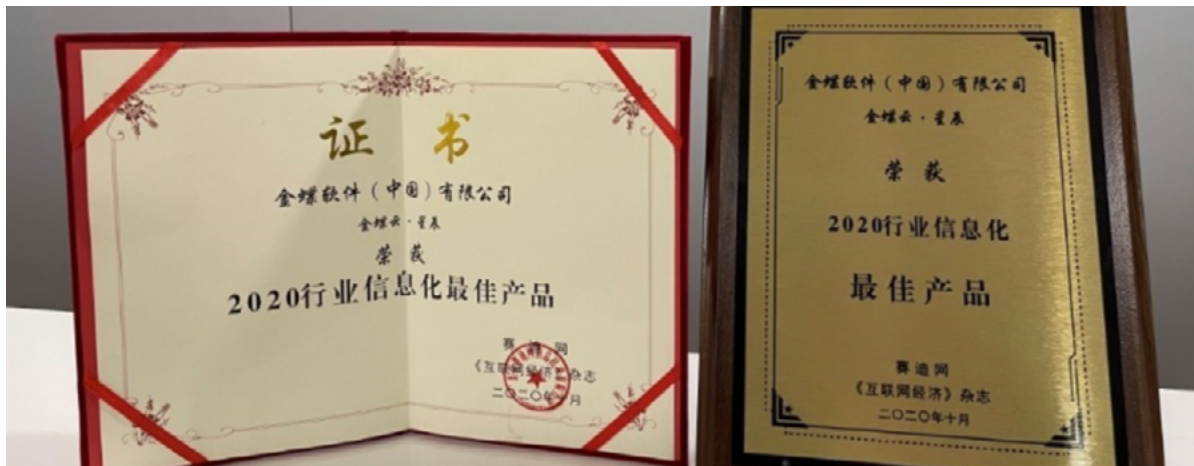 证 书
金蝶软件（中国）有限公司
金蝶云·星辰
荣获
2020行业信息化最佳产品
赛迪网
《互联网经济》杂志
二〇二〇年十月
金蝶软件（中国）有限公司
金蝶云·星辰
荣获
2020行业信息化
最佳产品
赛迪网
《互联网经济》杂志
二〇二〇年十月